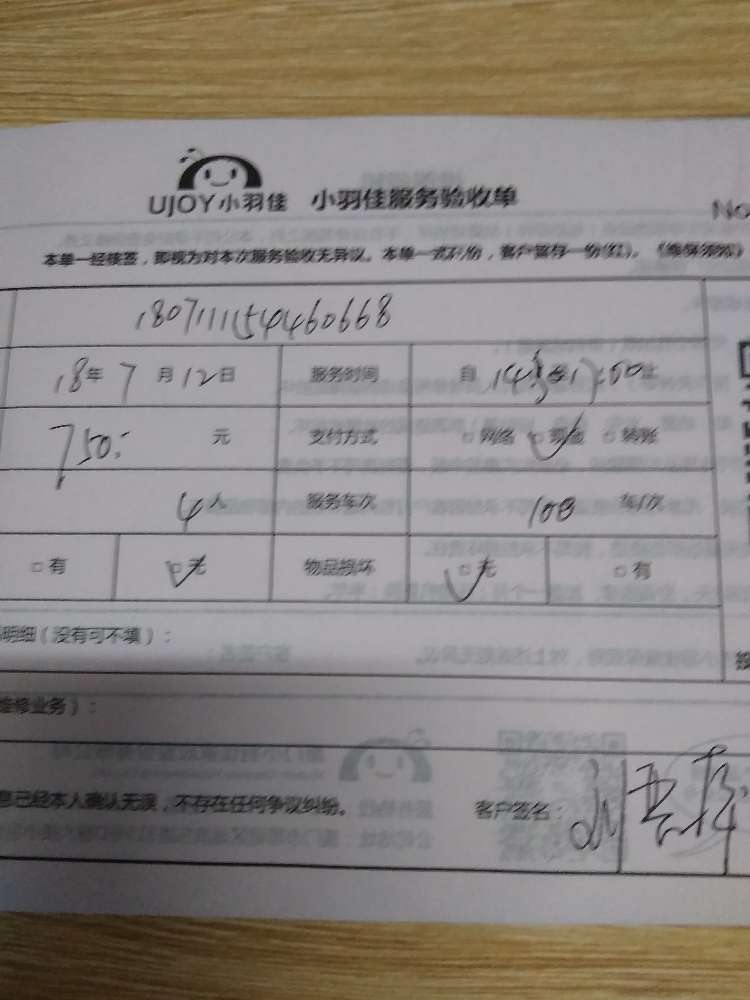 UJOY小羽佳 小羽佳服务验收单
No
本单一经核签，即视为对本次服务验收无异议。本单一式两份，客户留存一份(红)。
18071111554460668
18年7月12日 服务时间 自 止
750: 元 支付方式 □网络 □现金 □转账
4人 服务车次 车/次
□有 □无 物品损坏 □无 □有
明细（没有可不填）：
维修业务）：
息已经本人确认无误，不存在任何争议纠纷。 客户签名：